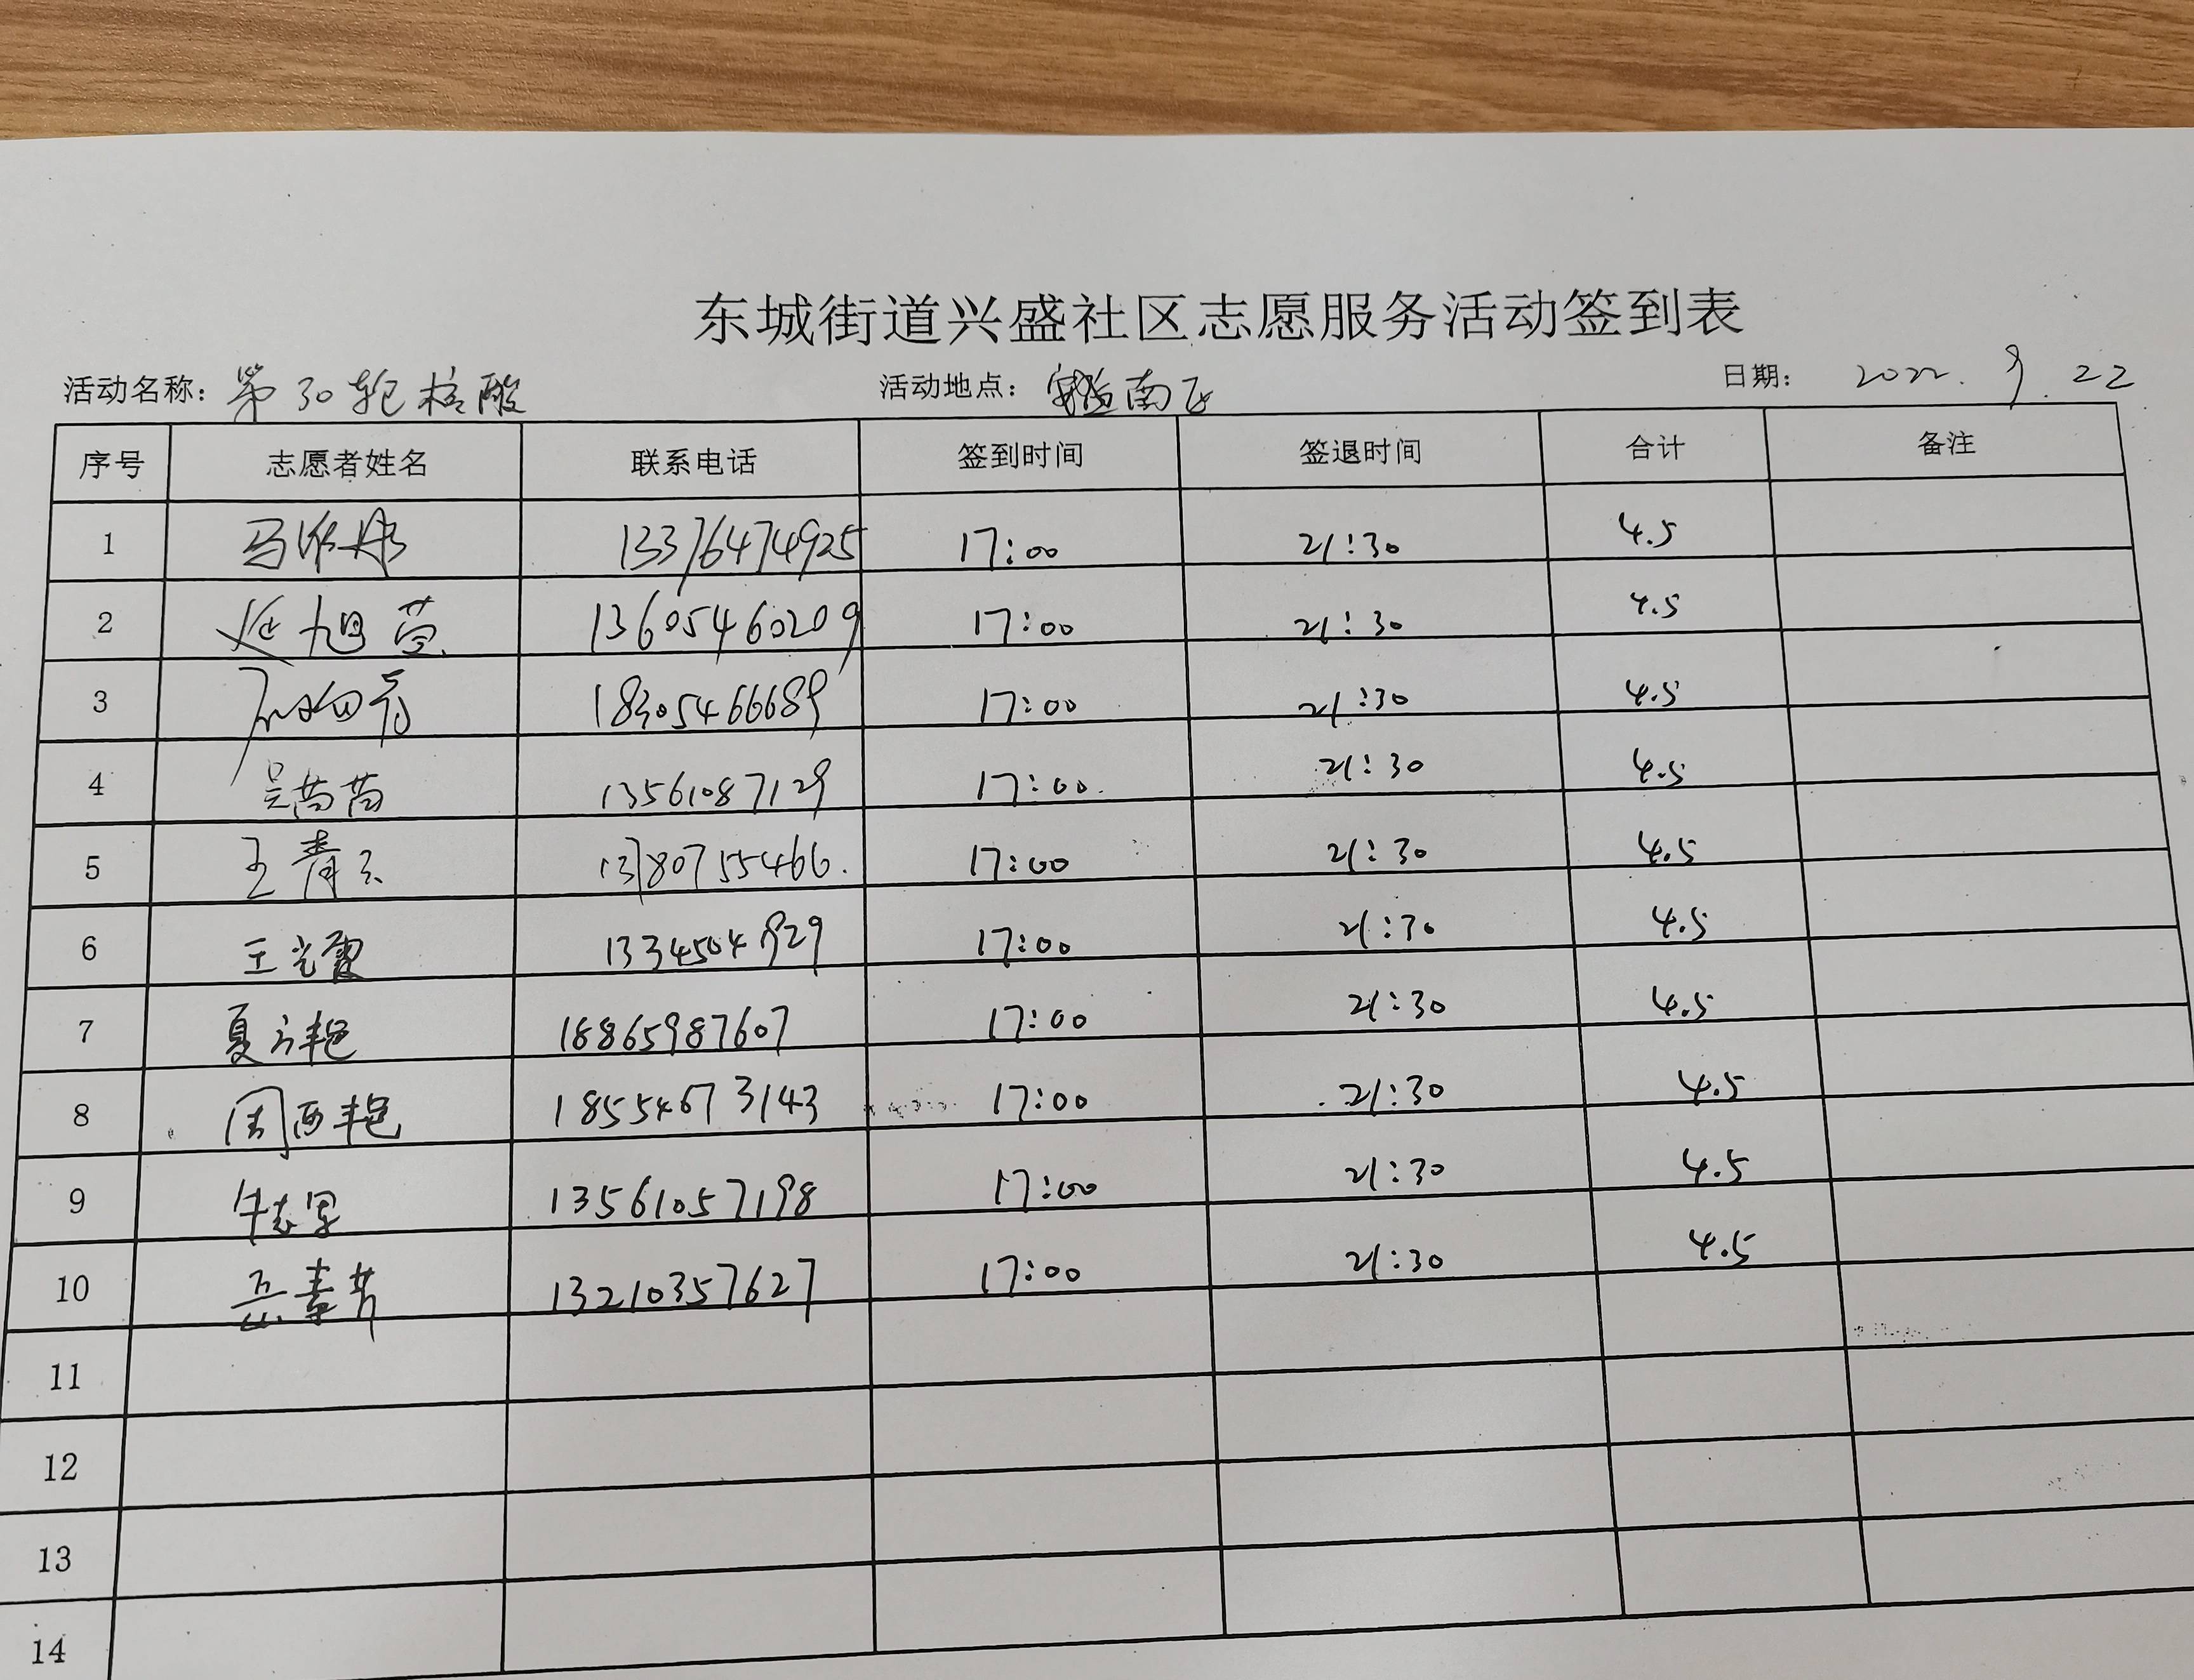 东城街道兴盛社区志愿服务活动签到表
活动名称：第30轮核酸 活动地点：实验南区 日期： 2022.9.22
序号 志愿者姓名 联系电话 签到时间 签退时间 合计 备注
1 13376474925 17:00 21:30 4.5
2 延旭营 13605460209 17:00 21:30 4.5
3 18305466689 17:00 21:30 4.5
4 吴苗苗 13561087129 17:00 21:30 4.5
5 王青云 13780755466 17:00 21:30 4.5
6 王光霞 1334504929 17:00 21:30 4.5
7 夏方艳 18865987607 17:00 21:30 4.5
8 周西艳 18554673143 17:00 21:30 4.5
9 牛志军 13561057198 17:00 21:30 4.5
10 岳素芳 13210357627 17:00 21:30 4.5
11
12
13
14